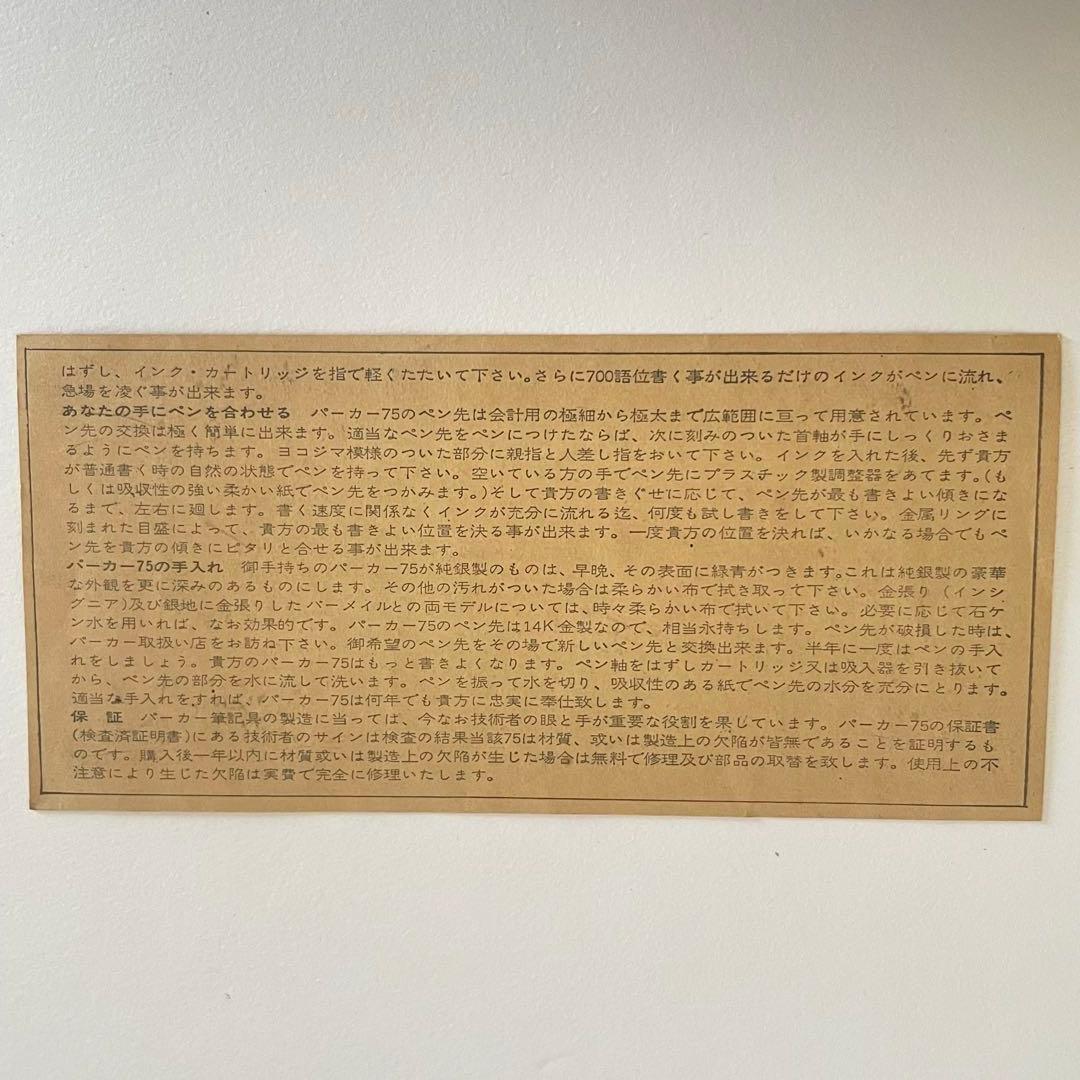 はずし、インク・カートリッジを指で軽くたたいて下さい。さらに700語位書く事が出来るだけのインクがペンに流れ、
急場を凌ぐ事が出来ます。
あなたの手にペンを合わせる　パーカー75のペン先は会計用の極細から極太まで広範囲に亘って用意されています。ペ
ン先の交換は極く簡単に出来ます。適当なペン先をペンにつけたならば、次に刻みのついた首軸が手にしっくりおさま
るようにペンを持ちます。ヨコジマ模様のついた部分に親指と人差し指をおいて下さい。インクを入れた後、先ず貴方
が普通書く時の自然の状態でペンを持って下さい。空いている方の手でペン先にプラスチック製調整器をあてます。(も
しくは吸収性の強い柔かい紙でペン先をつかみます。)そして貴方の書きぐせに応じて、ペン先が最も書きよい傾きにな
るまで、左右に廻します。書く速度に関係なくインクが充分に流れる迄、何度も試し書きをして下さい。金属リングに
刻まれた目盛によって、貴方の最も書きよい位置を決る事が出来ます。一度貴方の位置を決れば、いかなる場合でもペ
ン先を貴方の傾きにピタリと合せる事が出来ます。
パーカー75の手入れ　御手持ちのパーカー75が純銀製のものは、早晩、その表面に緑青がつきます。これは純銀製の豪華
な外観を更に深みのあるものにします。その他の汚れがついた場合は柔らかい布で拭き取って下さい。金張り（インシ
グニア)及び銀地に金張りしたバーメイルとの両モデルについては、時々柔らかい布で拭いて下さい。必要に応じて石ケ
ン水を用いれば、なお効果的です。パーカー75のペン先は14K金製なので、相当永持ちします。ペン先が破損した時は、
パーカー取扱い店をお訪ね下さい。御希望のペン先をその場で新しいペン先と交換出来ます。半年に一度はペンの手入
れをしましょう。貴方のパーカー75はもっと書きよくなります。ペン軸をはずしカートリッジ又は吸入器を引き抜いて
から、ペン先の部分を水に流して洗います。ペンを振って水を切り、吸収性のある紙でペン先の水分を充分にとります。
適当な手入れをすれば、パーカー75は何年でも貴方に忠実に奉仕致します。
保　証　パーカー筆記具の製造に当っては、今なお技術者の眼と手が重要な役割を果しています。パーカー75の保証書
(検査済証明書)にある技術者のサインは検査の結果当該75は材質、或いは製造上の欠陥が皆無であることを証明するも
のです。購入後一年以内に材質或いは製造上の欠陥が生じた場合は無料で修理及び部品の取替を致します。使用上の不
注意により生じた欠陥は実費で完全に修理いたします。